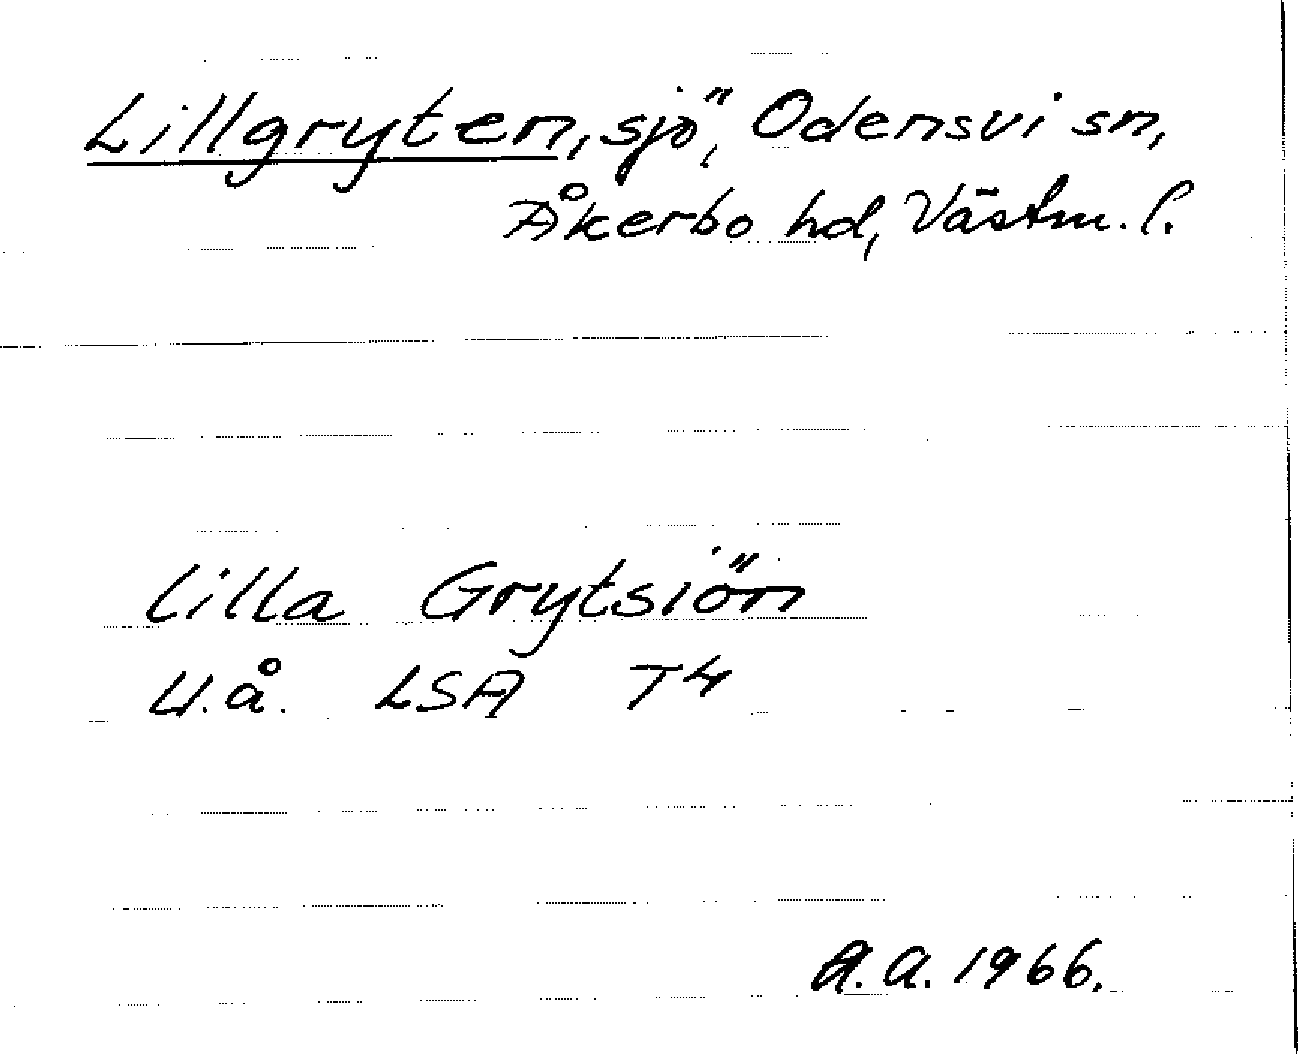 Lillgryten, sjö, Odensvi sn,
Åkerbo hd, Västm. l.
Lilla Grytsiön
U.å. LSA T4
A.A. 1966.